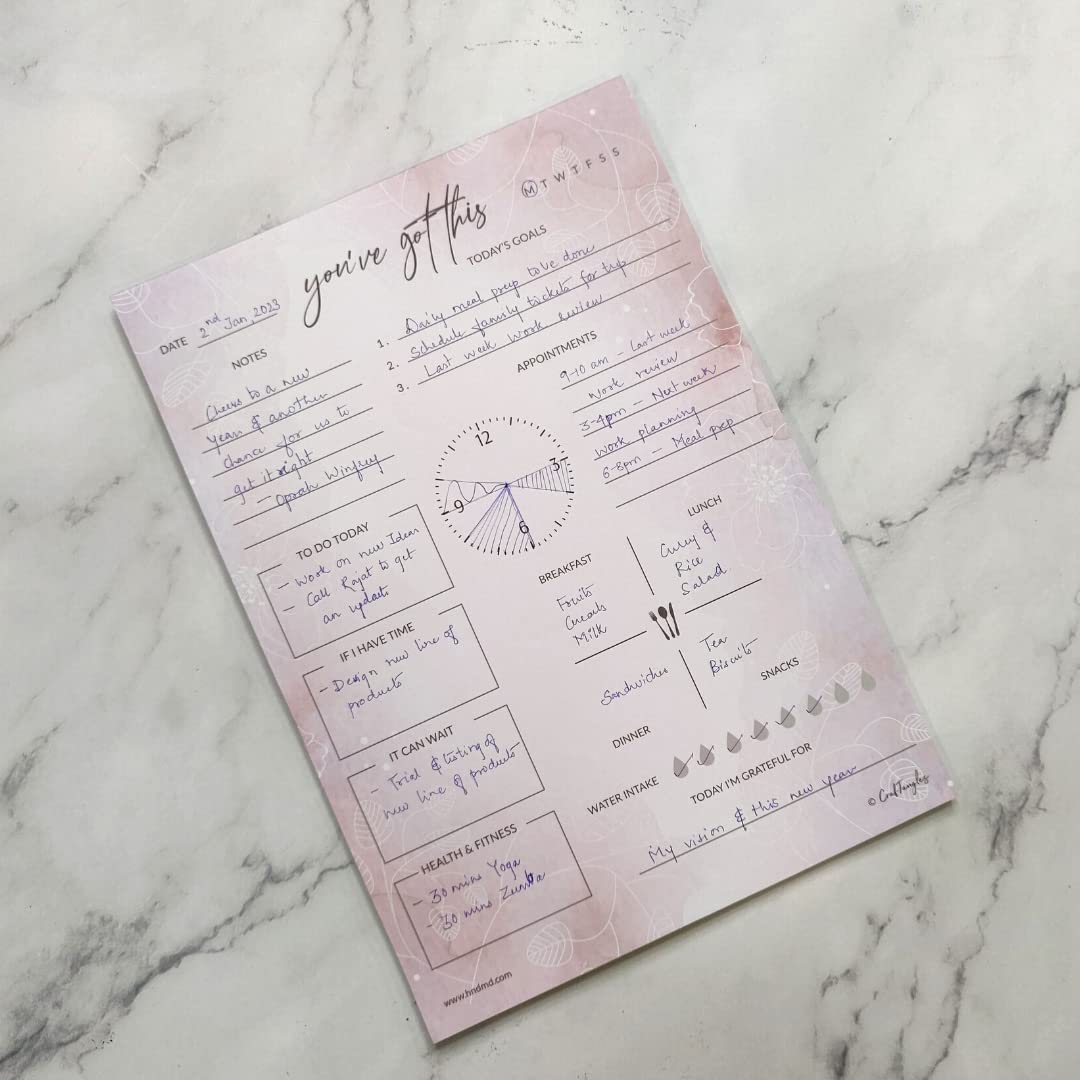 you've got this
M T W T F S S
DATE 2nd Jan, 2023
TODAY'S GOALS
1. Daily meal prep to be done
2. Schedule family tickets for trip
3. Last week work review
NOTES
Cheers to a new
Year & another
chance for us to
get it right
- Oprah Winfrey
APPOINTMENTS
9-10 am - Last week
work review
3-4pm - Next week
Work planning
6-8pm - Meal prep
12
3
6
9
TO DO TODAY
- Work on new Ideas
- Call Rajat to get
an update
IF I HAVE TIME
- Design new line of
products
IT CAN WAIT
- Trial & testing of
new line of products
HEALTH & FITNESS
- 30 mins Yoga
- 30 mins Zumba
BREAKFAST
Fruits
Cereals
Milk
LUNCH
Curry &
Rice
Salad
Sandwiches
DINNER
Tea
Biscuits
SNACKS
WATER INTAKE
TODAY I'M GRATEFUL FOR
My vision & this new year
www.hndmd.com
© CrafTangles